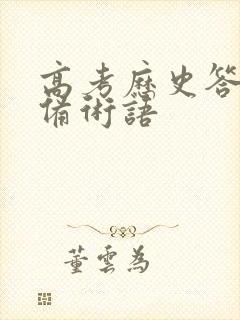 高考歷史答
備術語
董雲為